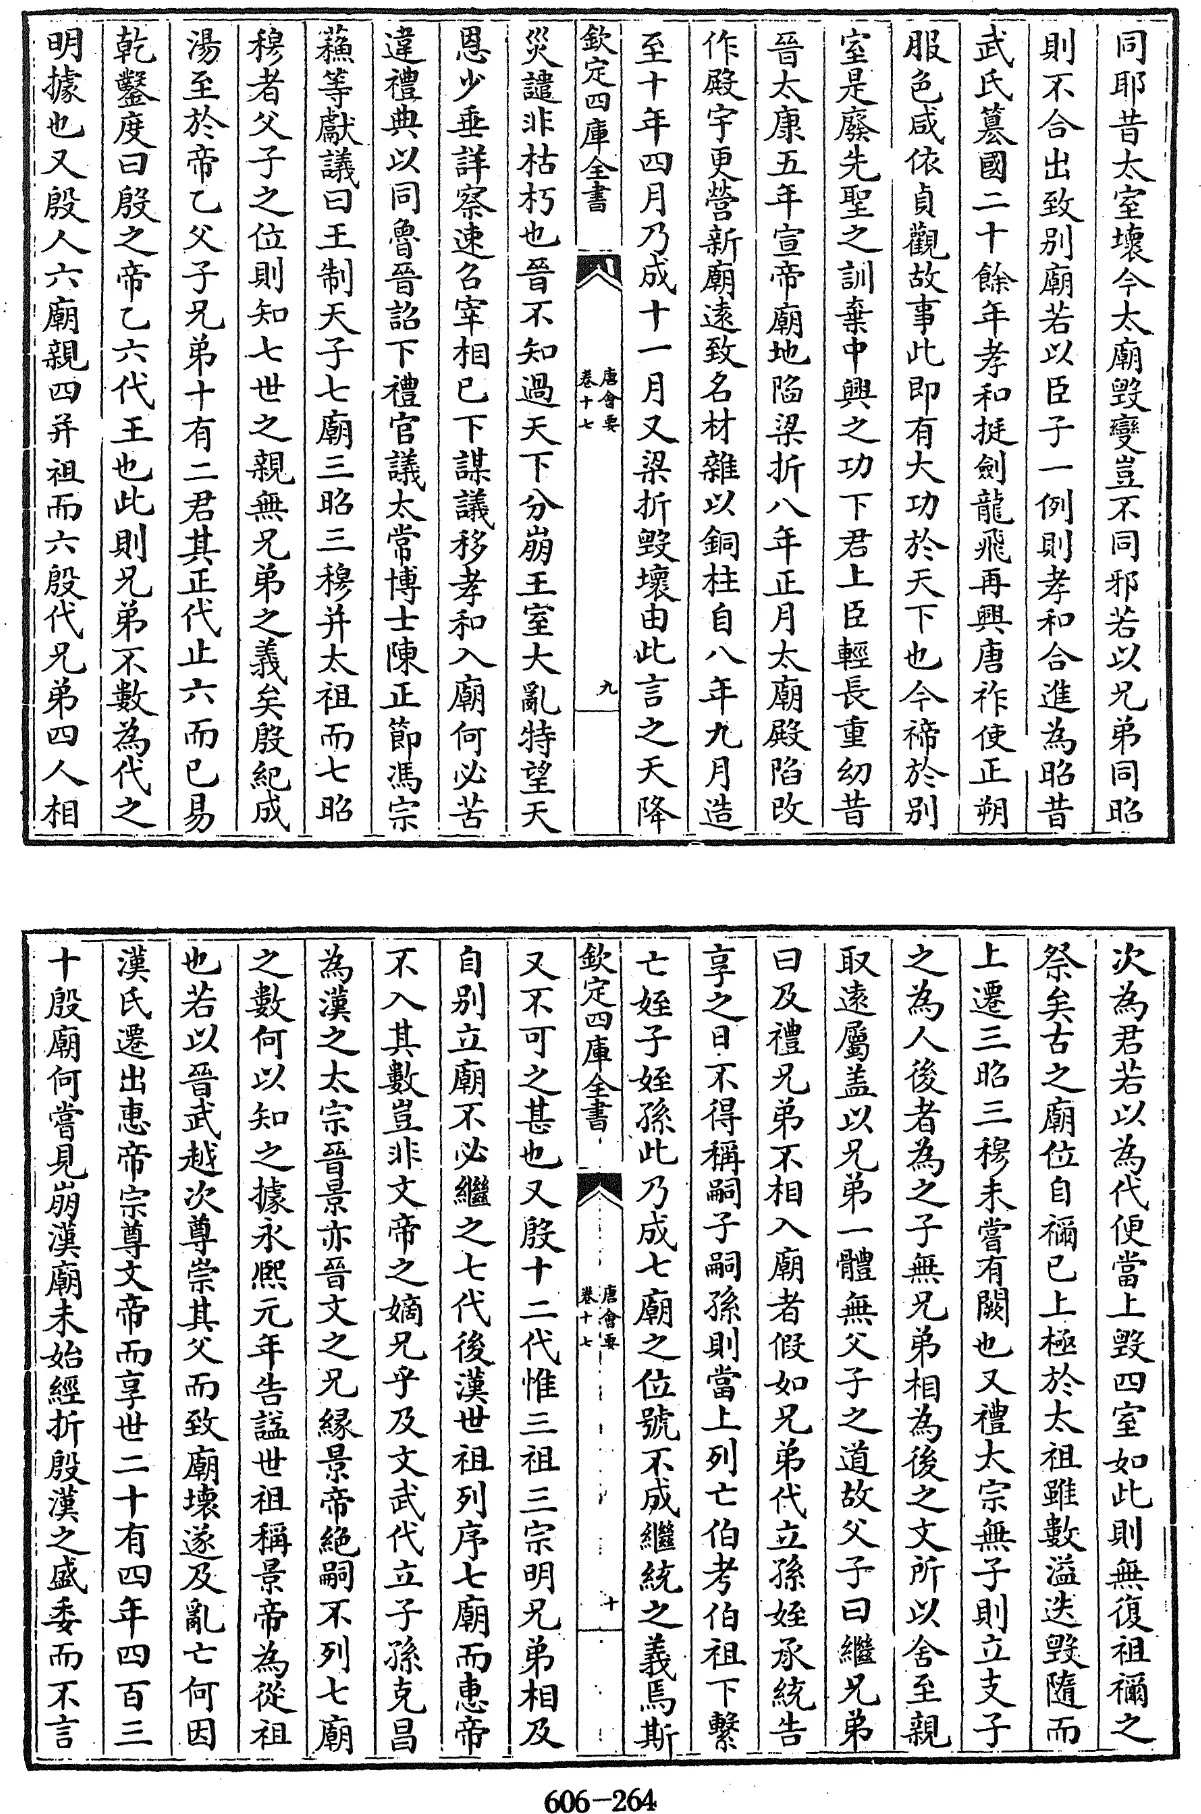 同耶昔太室壞今太廟毀變豈不同邪若以兄弟同昭
則不合出致别廟若以臣子一例則孝和合進為昭昔
武氏簒國二十餘年孝和挺劍龍飛再興唐祚使正朔
服色咸依貞觀故事此即有大功於天下也今禘於别
室是廢先聖之訓棄中興之功下君上臣輕長重幼昔
晉太康五年宣帝廟地陷梁折八年正月太廟殿陷改
作殿宇更營新廟遠致名材雜以銅柱自八年九月造
至十年四月乃成十一月又梁折毀壞由此言之天降
欽定四庫全書
唐會要
卷十七
九
災譴非枯朽也晉不知過天下分崩王室大亂特望天
恩少垂詳察速召宰相已下謀議移孝和入廟何必苦
違禮典以同魯晉詔下禮官議太常博士陳正節馮宗
蘓等獻議曰王制天子七廟三昭三穆并太祖而七昭
穆者父子之位則知七世之親無兄弟之義矣殷紀成
湯至於帝乙父子兄弟十有二君其正代止六而已易
乾鑿度曰殷之帝乙六代王也此則兄弟不數為代之
明據也又殷人六廟親四并祖而六殷代兄弟四人相
次為君若以為代便當上毀四室如此則無復祖禰之
祭矣古之廟位自禰已上極於太祖雖數溢迭毀隨而
上遷三昭三穆未嘗有闕也又禮太宗無子則立支子
之為人後者為之子無兄弟相為後之文所以舍至親
取遠屬盖以兄弟一體無父子之道故父子曰繼兄弟
曰及禮兄弟不相入廟者假如兄弟代立孫姪承統告
享之日不得稱嗣子嗣孫則當上列亡伯考伯祖下繫
亡姪子姪孫此乃成七廟之位號不成繼統之義焉斯
欽定四庫全書
唐會要
卷十七
十
又不可之甚也又殷十二代惟三祖三宗明兄弟相及
自别立廟不必繼之七代後漢世祖列序七廟而惠帝
不入其數豈非文帝之嫡兄乎及文武代立子孫克昌
為漢之太宗晉景亦晉文之兄緣景帝絶嗣不列七廟
之數何以知之據永熙元年告諡世祖稱景帝為從祖
也若以晉武越次尊崇其父而致廟壞遂及亂亡何因
漢氏遷出惠帝宗尊文帝而享世二十有四年四百三
十殷廟何嘗見崩漢廟未始經折殷漢之盛委而不言
606-264